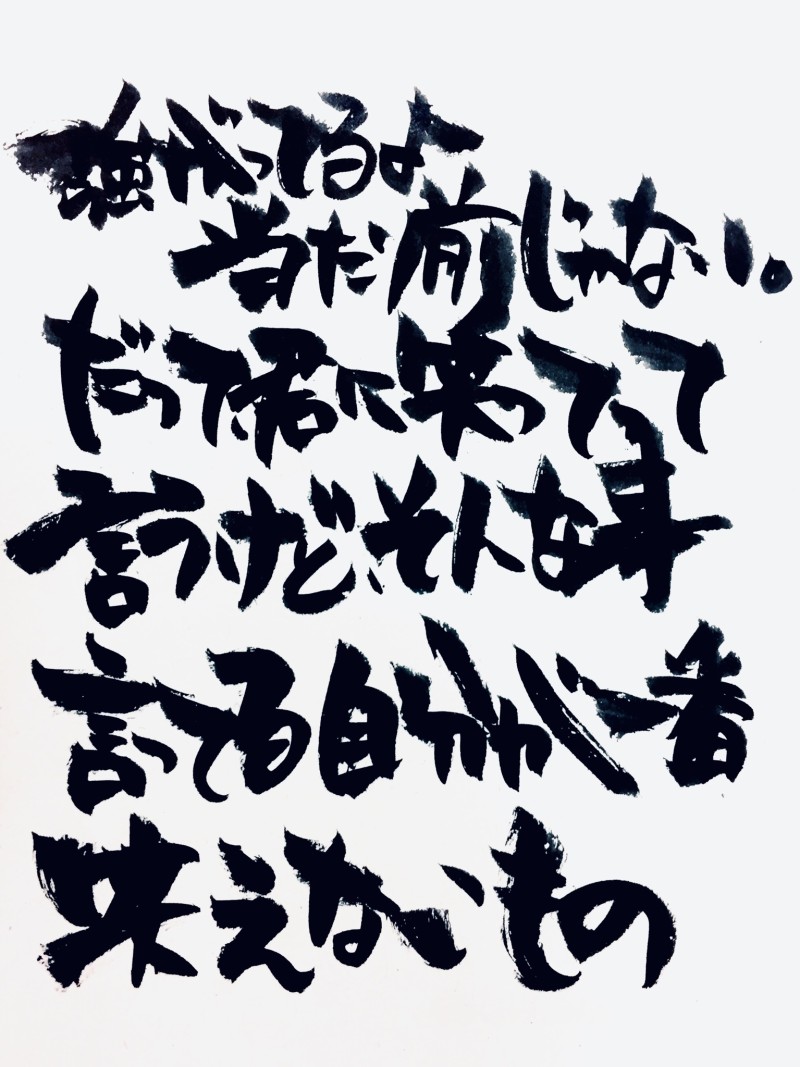 強がってるよ
当だ前じゃない。
だって君に笑ってって
言うけど、そんな事
言ってる自分が一番
笑えないもの